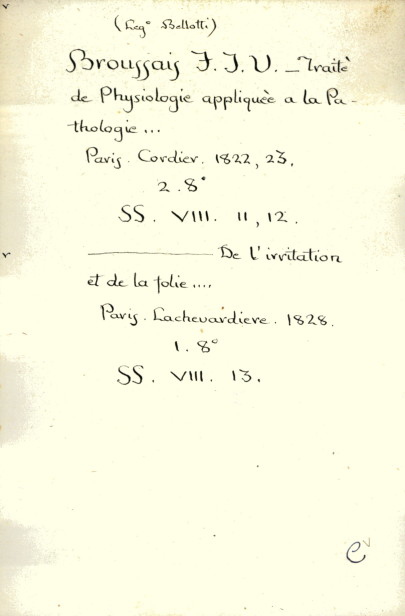 (Leg° Bellotti)
Broussais F. J. V. _ Traitè
de Physiologie appliquèe a la Pa-
thologie...
Paris. Cordier. 1822, 23.
2. 8°
SS. VIII. 11, 12.
——— De l'irritation
et de la folie....
Paris. Lachevardiere. 1828.
1. 8°
SS. VIII. 13.